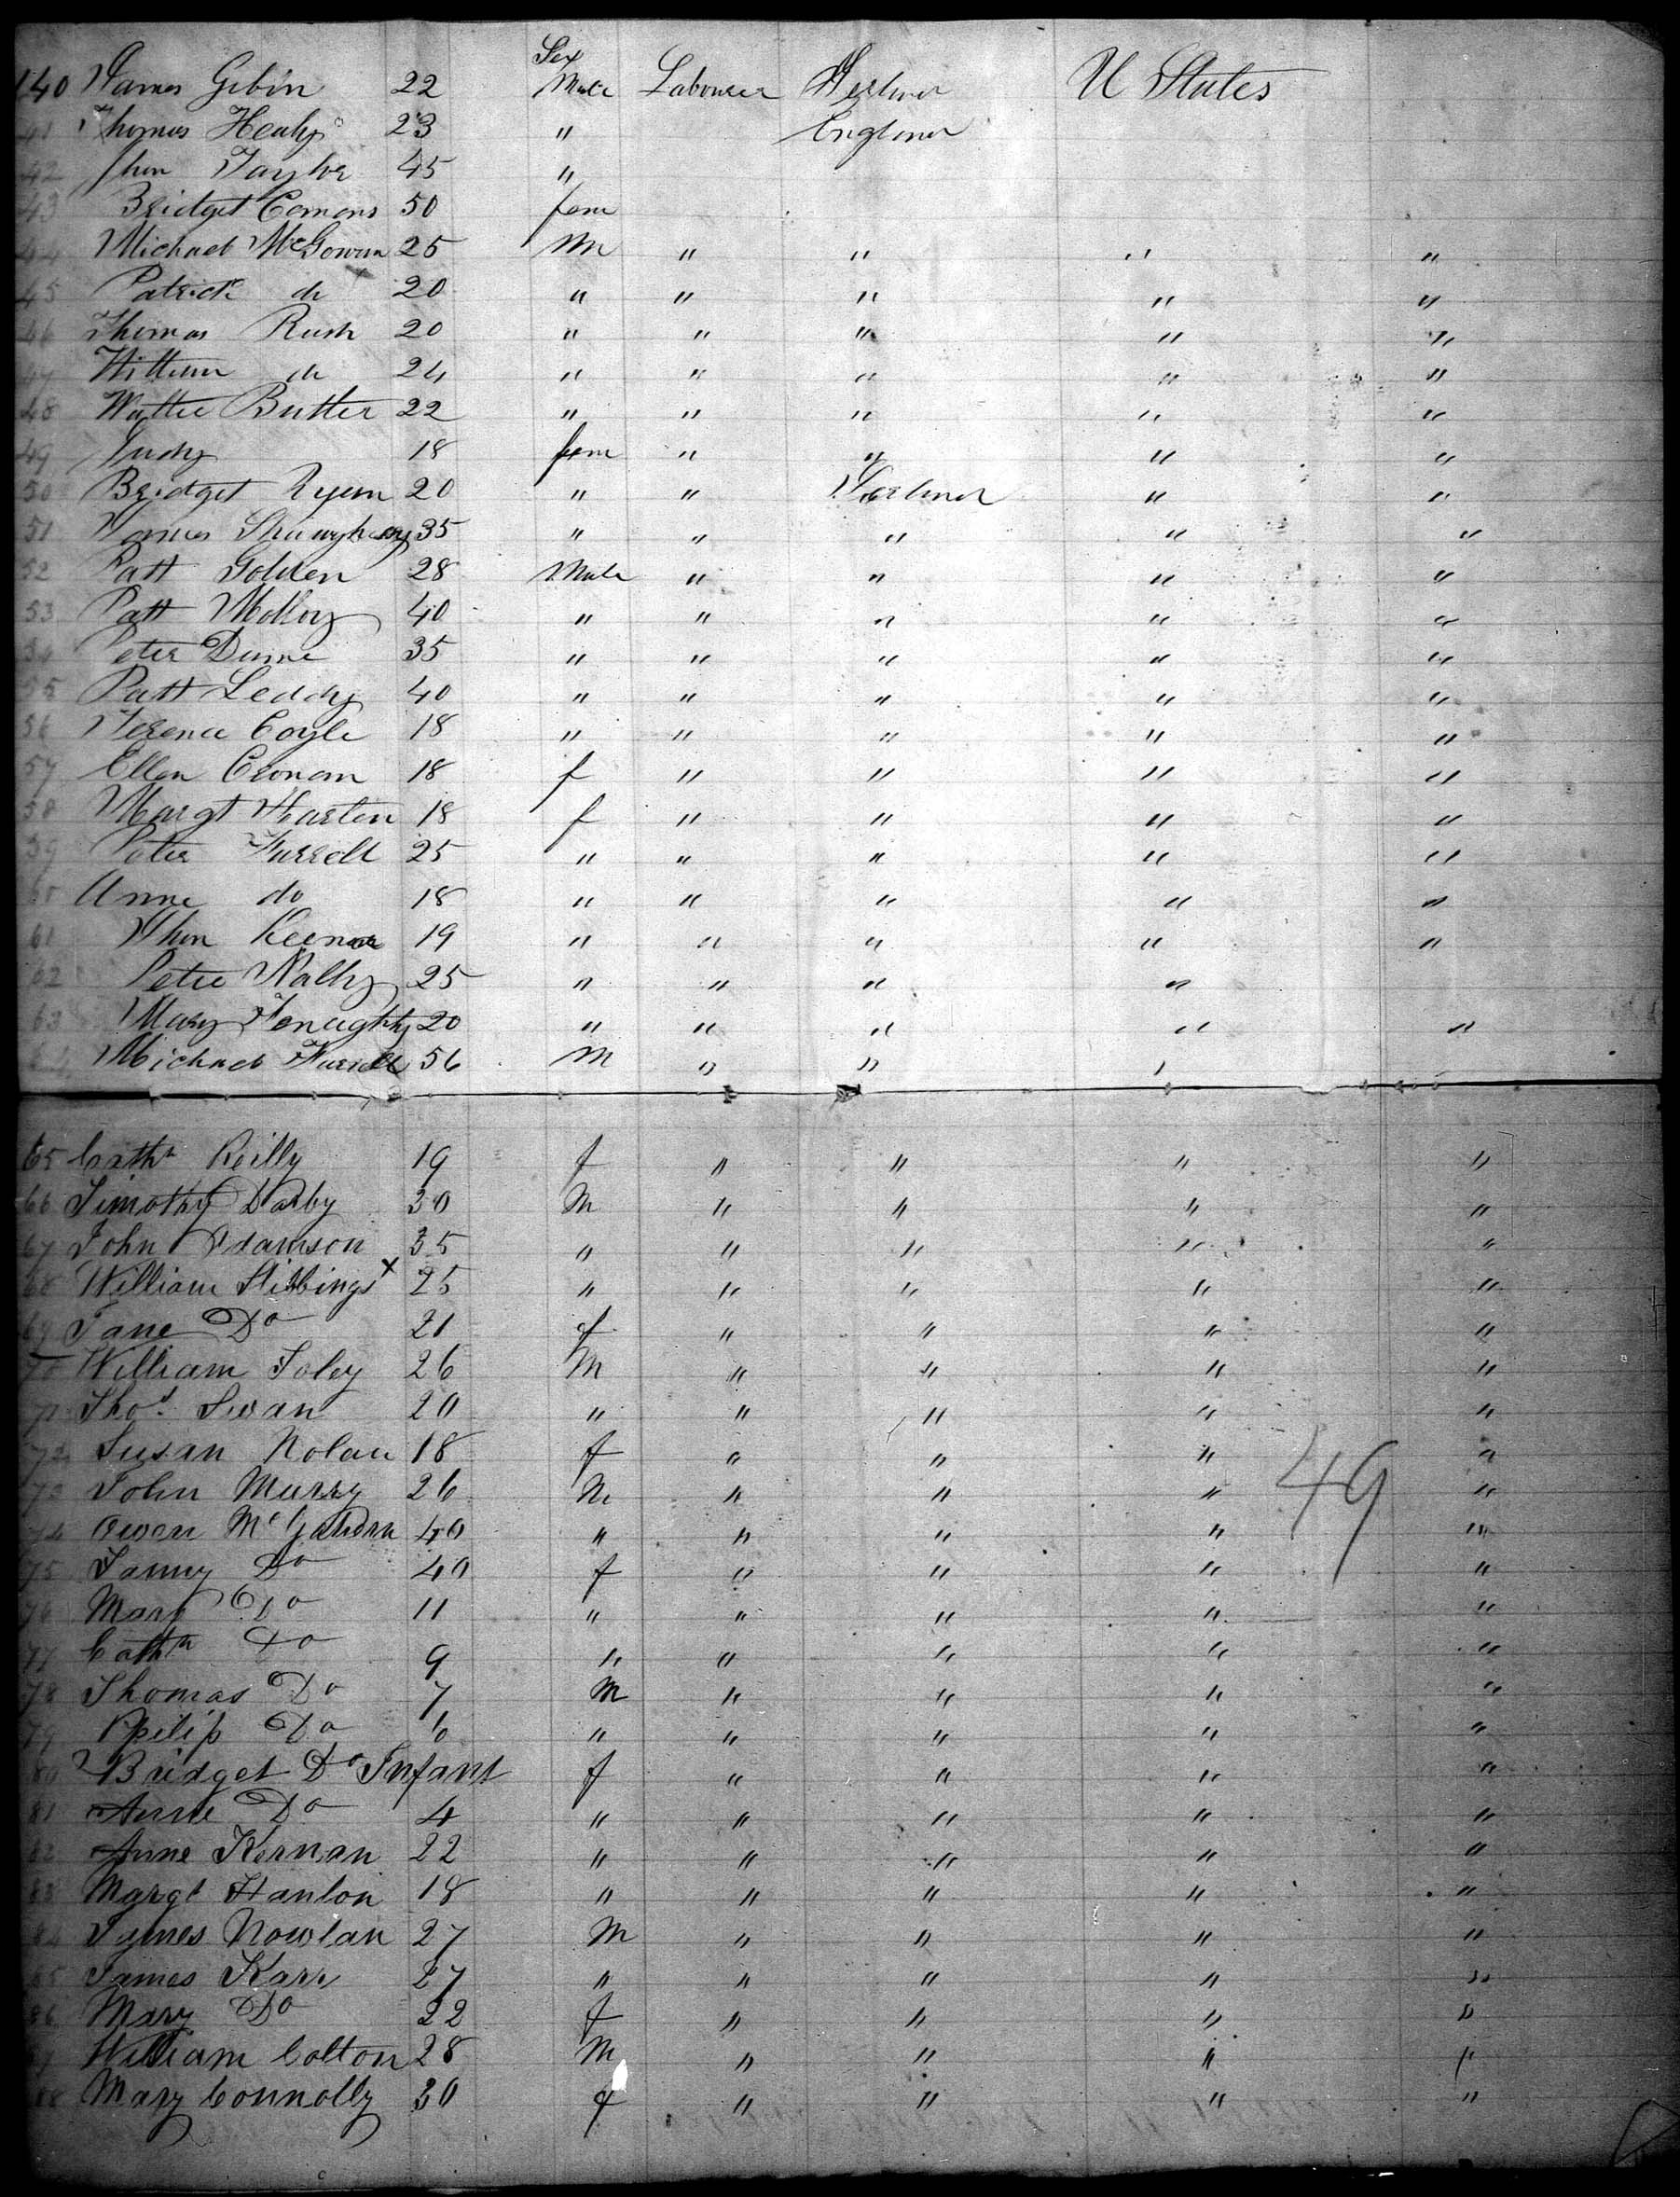 Sex
140 James Gibin 22 Male Labourer Ireland U States
41 Thomas Healy 23 " England
42 Jhon Taylor 45 "
43 Bridget Comons 50 fem
44 Michael McGowan 25 M " " " "
45 Patrick do 20 " " " " "
46 Thomas Rush 20 " " " " "
47 William do 24 " " " " "
48 Walter Butler 22 " " " " "
49 Judy 18 fem " " " "
50 Bridget Ryan 20 " " Ireland " "
51 James Shaughnesy 35 " " " " "
52 Patt Golden 28 Male " " " "
53 Patt Molloy 40 " " " " "
54 Peter Dunne 35 " " " " "
55 Patt Leddy 40 " " " " "
56 Terence Coyle 18 " " " " "
57 Ellen Cronan 18 f " " " "
58 Margt Harten 18 f " " " "
59 Peter Farrell 25 " " " " "
60 Anne do 18 " " " " "
61 Jhon Keenan 19 " " " " "
62 Peter Nally 25 " " " "
63 Mary Fenaghty 20 " " " " "
Michael Farrell 56 M " " "
65 Cathn Reilly 19 f " " " "
66 Timothy Darby 30 M " " " "
67 John Adamson 35 " " " " "
68 William Stibbings x 25 " " " " "
69 Jane Do 21 f " " " "
70 William Foley 26 M " " " "
71 Thos Swan 20 " " " " "
72 Susan Nolan 18 f " " " "
73 John Murry 26 M " " " "
49
74 Owen McGahran 40 " " " " "
75 Fanny Do 40 f " " " "
76 Mary Do 11 " " " " "
77 Cathn Do 9 " " " " "
78 Thomas Do 7 M " " " "
79 Philip Do 6 " " " " "
80 Bridget Do Infant f " " " "
81 Anne Do 4 " " " " "
82 Anne Kernan 22 " " " " "
83 Margt Hanlon 18 " " " " "
84 James Nowlan 27 M " " " "
85 James Karr 27 " " " " "
86 Mary Do 22 f " " " "
87 William Colton 28 M " " " "
88 Mary Connolly 30 f " " " "